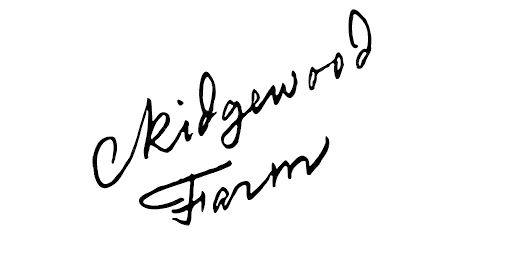 Ridgewood
Farm